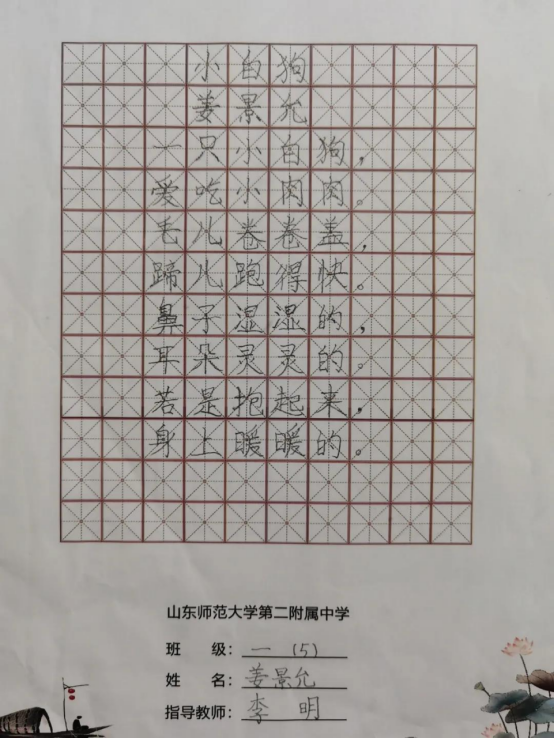 小白狗
姜景允
一只小白狗，
爱吃小肉肉。
毛儿卷卷盖，
蹄儿跑得快。
鼻子湿湿的，
耳朵灵灵的。
若是抱起来，
身上暖暖的。
山东师范大学第二附属中学
班 级：一（5）
姓 名：姜景允
指导教师：李 明